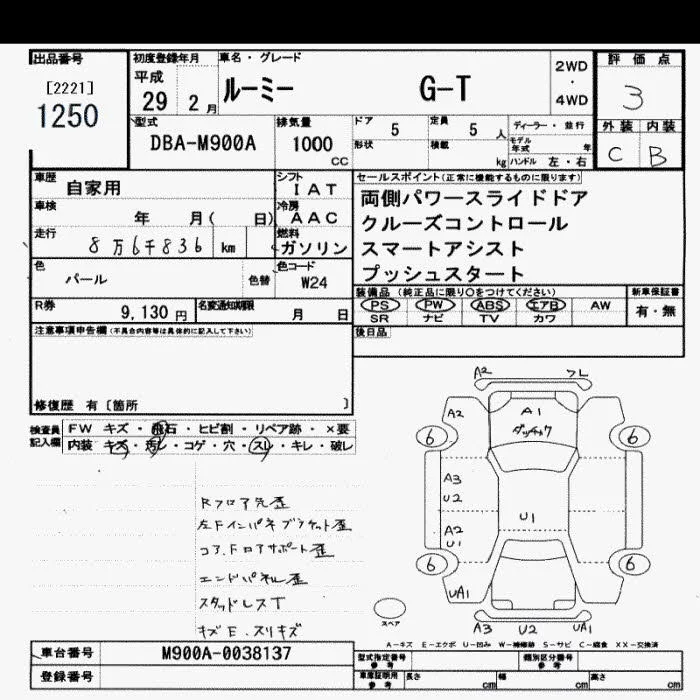 出品番号
[2221]
1250
初度登録年月
平成
29 2月
車名・グレード
ルーミー G-T
2WD
・
4WD
評価点
3
外装 内装
C B
型式
DBA-M900A
排気量
1000
CC
ドア 5
定員 5 人
ディーラー・並行
モデル年式 年
形状
積載 kg
ハンドル 左・右
車歴 自家用
シフト
IAT
車検 年 月( 日)
冷房
AAC
走行 8万6千836 km
燃料
ガソリン
色 パール 色替
色コード
W24
R券 9,130円
名変通知期限 月 日
セールスポイント(正常に機能するものに限ります)
両側パワースライドドア
クルーズコントロール
スマートアシスト
プッシュスタート
装備品(純正品に限り○をつけてください)
新車保証書
PS PW ABS エアB AW
有・無
SR ナビ TV カワ
後日品
注意事項申告欄(不具合内容等は具体的に記入して下さい)
修復歴 有〔箇所 〕
検査員記入欄
FW キズ・飛石・ヒビ割・リペア跡・×要
内装 キズ・汚レ・コゲ・穴・スレ・キレ・破レ
Rフロア先歪
左Fインパネブラケット歪
コア、Fロアサポート歪
エンドパネル歪
スタッドレスT
キズE、スリキズ
A2 フL
A2
A1
6 6
A3
U2
A2
U1
U1
6 6
UA1
UA1
A3 U2 A1
スペア
A-キズ E-エクボ U-凹み W-補修跡 S-サビ C-腐食 XX-交換済
車台番号 M900A-0038137
登録番号
型式指定番号
参考
類別区分番号
参考
車庫証明用
参考
長さ cm 幅 cm 高さ cm